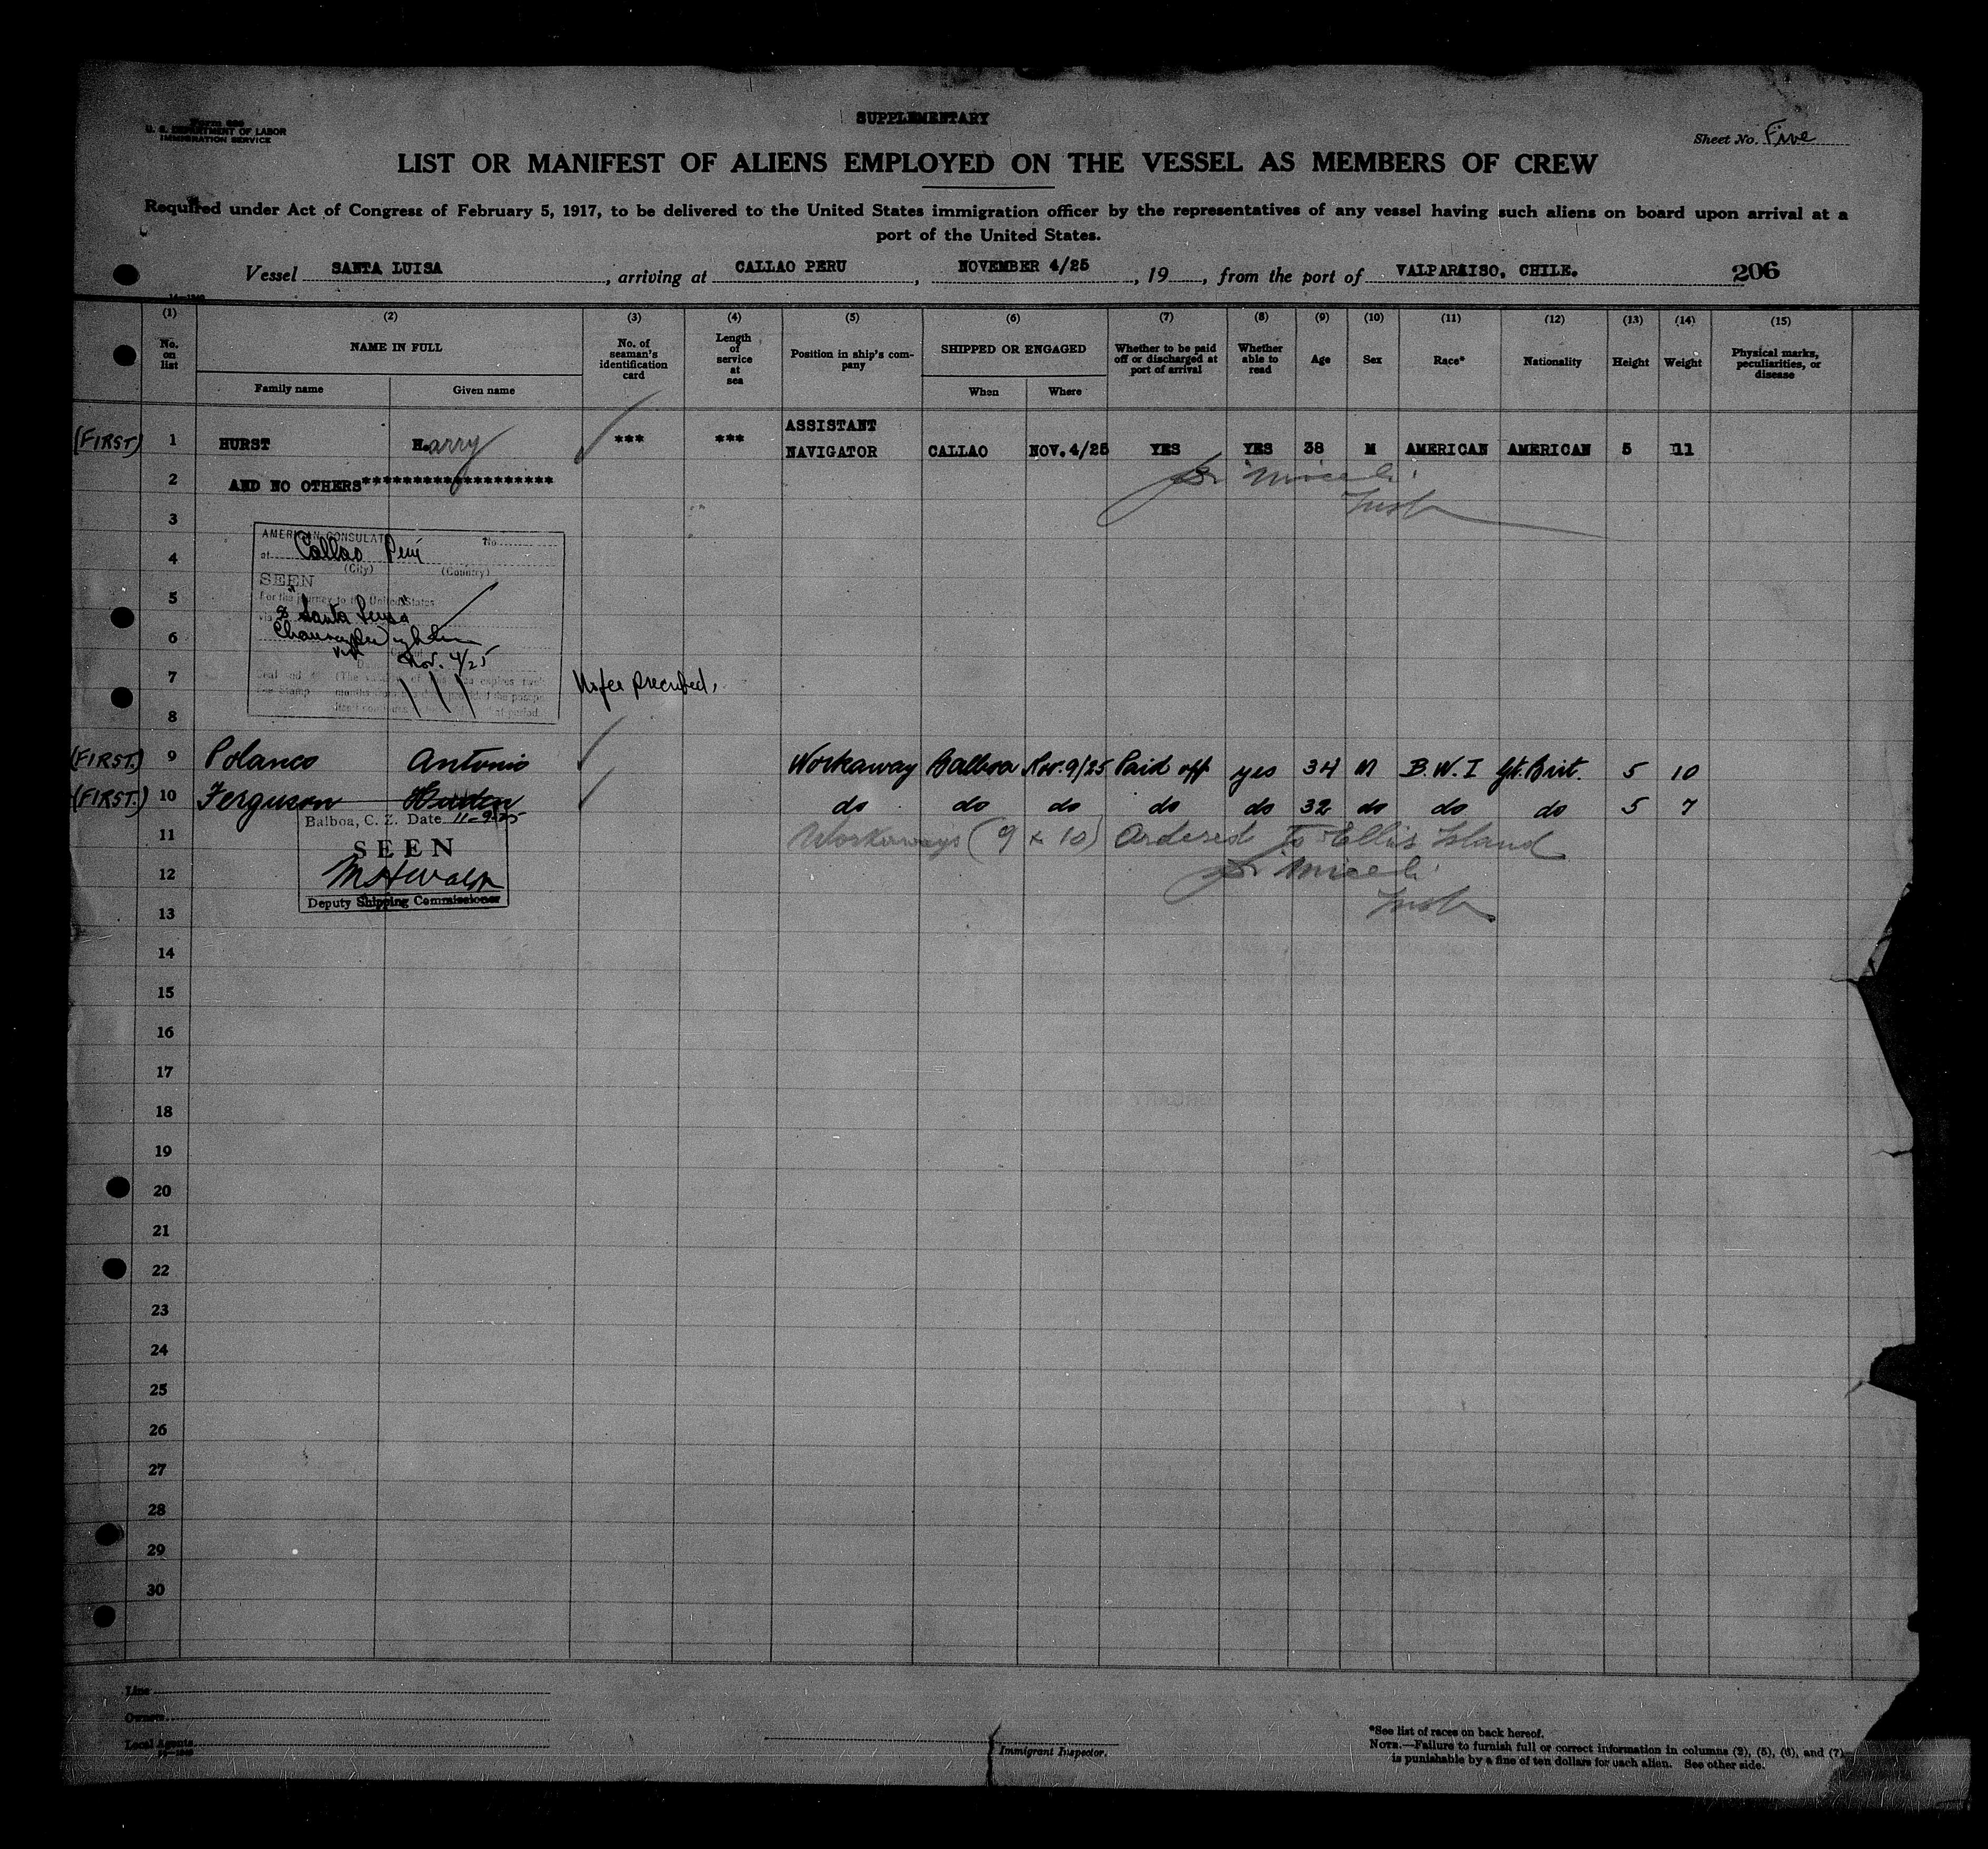 SUPPLEMENTARY
Form 680
U. S. DEPARTMENT OF LABOR
IMMIGRATION SERVICE
Sheet No. Five
LIST OR MANIFEST OF ALIENS EMPLOYED ON THE VESSEL AS MEMBERS OF CREW
Required under Act of Congress of February 5, 1917, to be delivered to the United States immigration officer by the representatives of any vessel having such aliens on board upon arrival at a
port of the United States.
Vessel SANTA LUISA, arriving at CALLAO PERU, NOVEMBER 4/25, 19, from the port of VALPARAISO, CHILE. 206
(1) (2) (3) (4) (5) (6) (7) (8) (9) (10) (11) (12) (13) (14) (15)
No. on list NAME IN FULL No. of seaman's identification card Length of service at sea Position in ship's company SHIPPED OR ENGAGED Whether to be paid off or discharged at port of arrival Whether able to read Age Sex Race* Nationality Height Weight Physical marks, peculiarities, or disease
Family name Given name When Where
(FIRST) 1 HURST H.arry *** *** ASSISTANT NAVIGATOR CALLAO NOV. 4/25 YES YES 38 M AMERICAN AMERICAN 5 11
2 AND NO OTHERS*******************
Miceli
Insp
3
AMERICAN CONSULAT No.
4 at Callao Peru
(City) (Country)
SEEN
5 For the journey to the United States
via "Santa Luisa"
6
Nov. 4/25
7 No fee prescribed.
8
(FIRST.) 9 Polanco Antonio Workaway Balboa Nov. 9/25 Paid off yes 34 M B.W.I Gt. Brit. 5 10
(FIRST.) 10 Ferguson do do do do do 32 do do do 5 7
Balboa, C. Z. Date 11-9-25
11 Workaways (9 & 10) Ordered to Ellis Island
SEEN
12 Miceli
Deputy Shipping Commissioner
13 Insp
14
15
16
17
18
19
20
21
22
23
24
25
26
27
28
29
30
Line
Owners
Local Agents
Immigrant Inspector.
*See list of races on back hereof.
NOTE.—Failure to furnish full or correct information in columns (2), (5), (6), and (7)
is punishable by a fine of ten dollars for each alien. See other side.